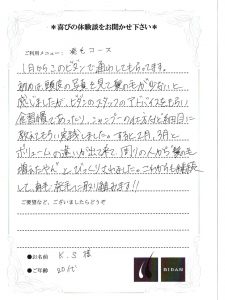 ＊喜びの体験談をお聞かせ下さい＊
ご利用メニュー： 発毛コース
1月からこのビダンで通わしてもらってます。
初めは頭皮の写真を見て髪の毛が少ないと
感じましたが、ビダンのスタッフのアドバイスをもらい
食習慣であったり、シャンプーの仕方など細かく
教えてもらい実践しました。すると2月、3月と
ボリュームの違いが出て来て、周りの人から"髪の毛
増えたやん"と、びっくりされました。これからも継続
して、育毛、発毛に取り組みます!!
ご要望など、ございましたらどうぞ
●お名前 K.S 様
●ご年齢 20代
BIDAN